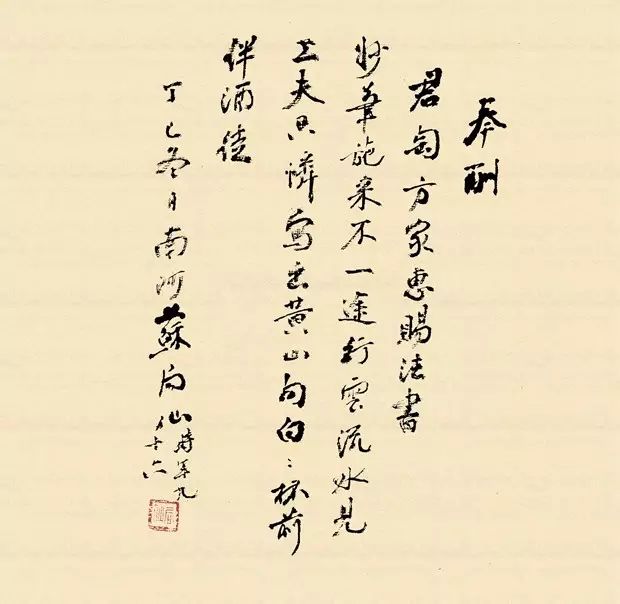 奉酬
君匋方家惠賜法書
妙筆施来不一途行雲流水見
工夫只憐寫出黃山句白〻杯前
伴酒徒
丁巳冬日南河蘇局仙時年九
十六